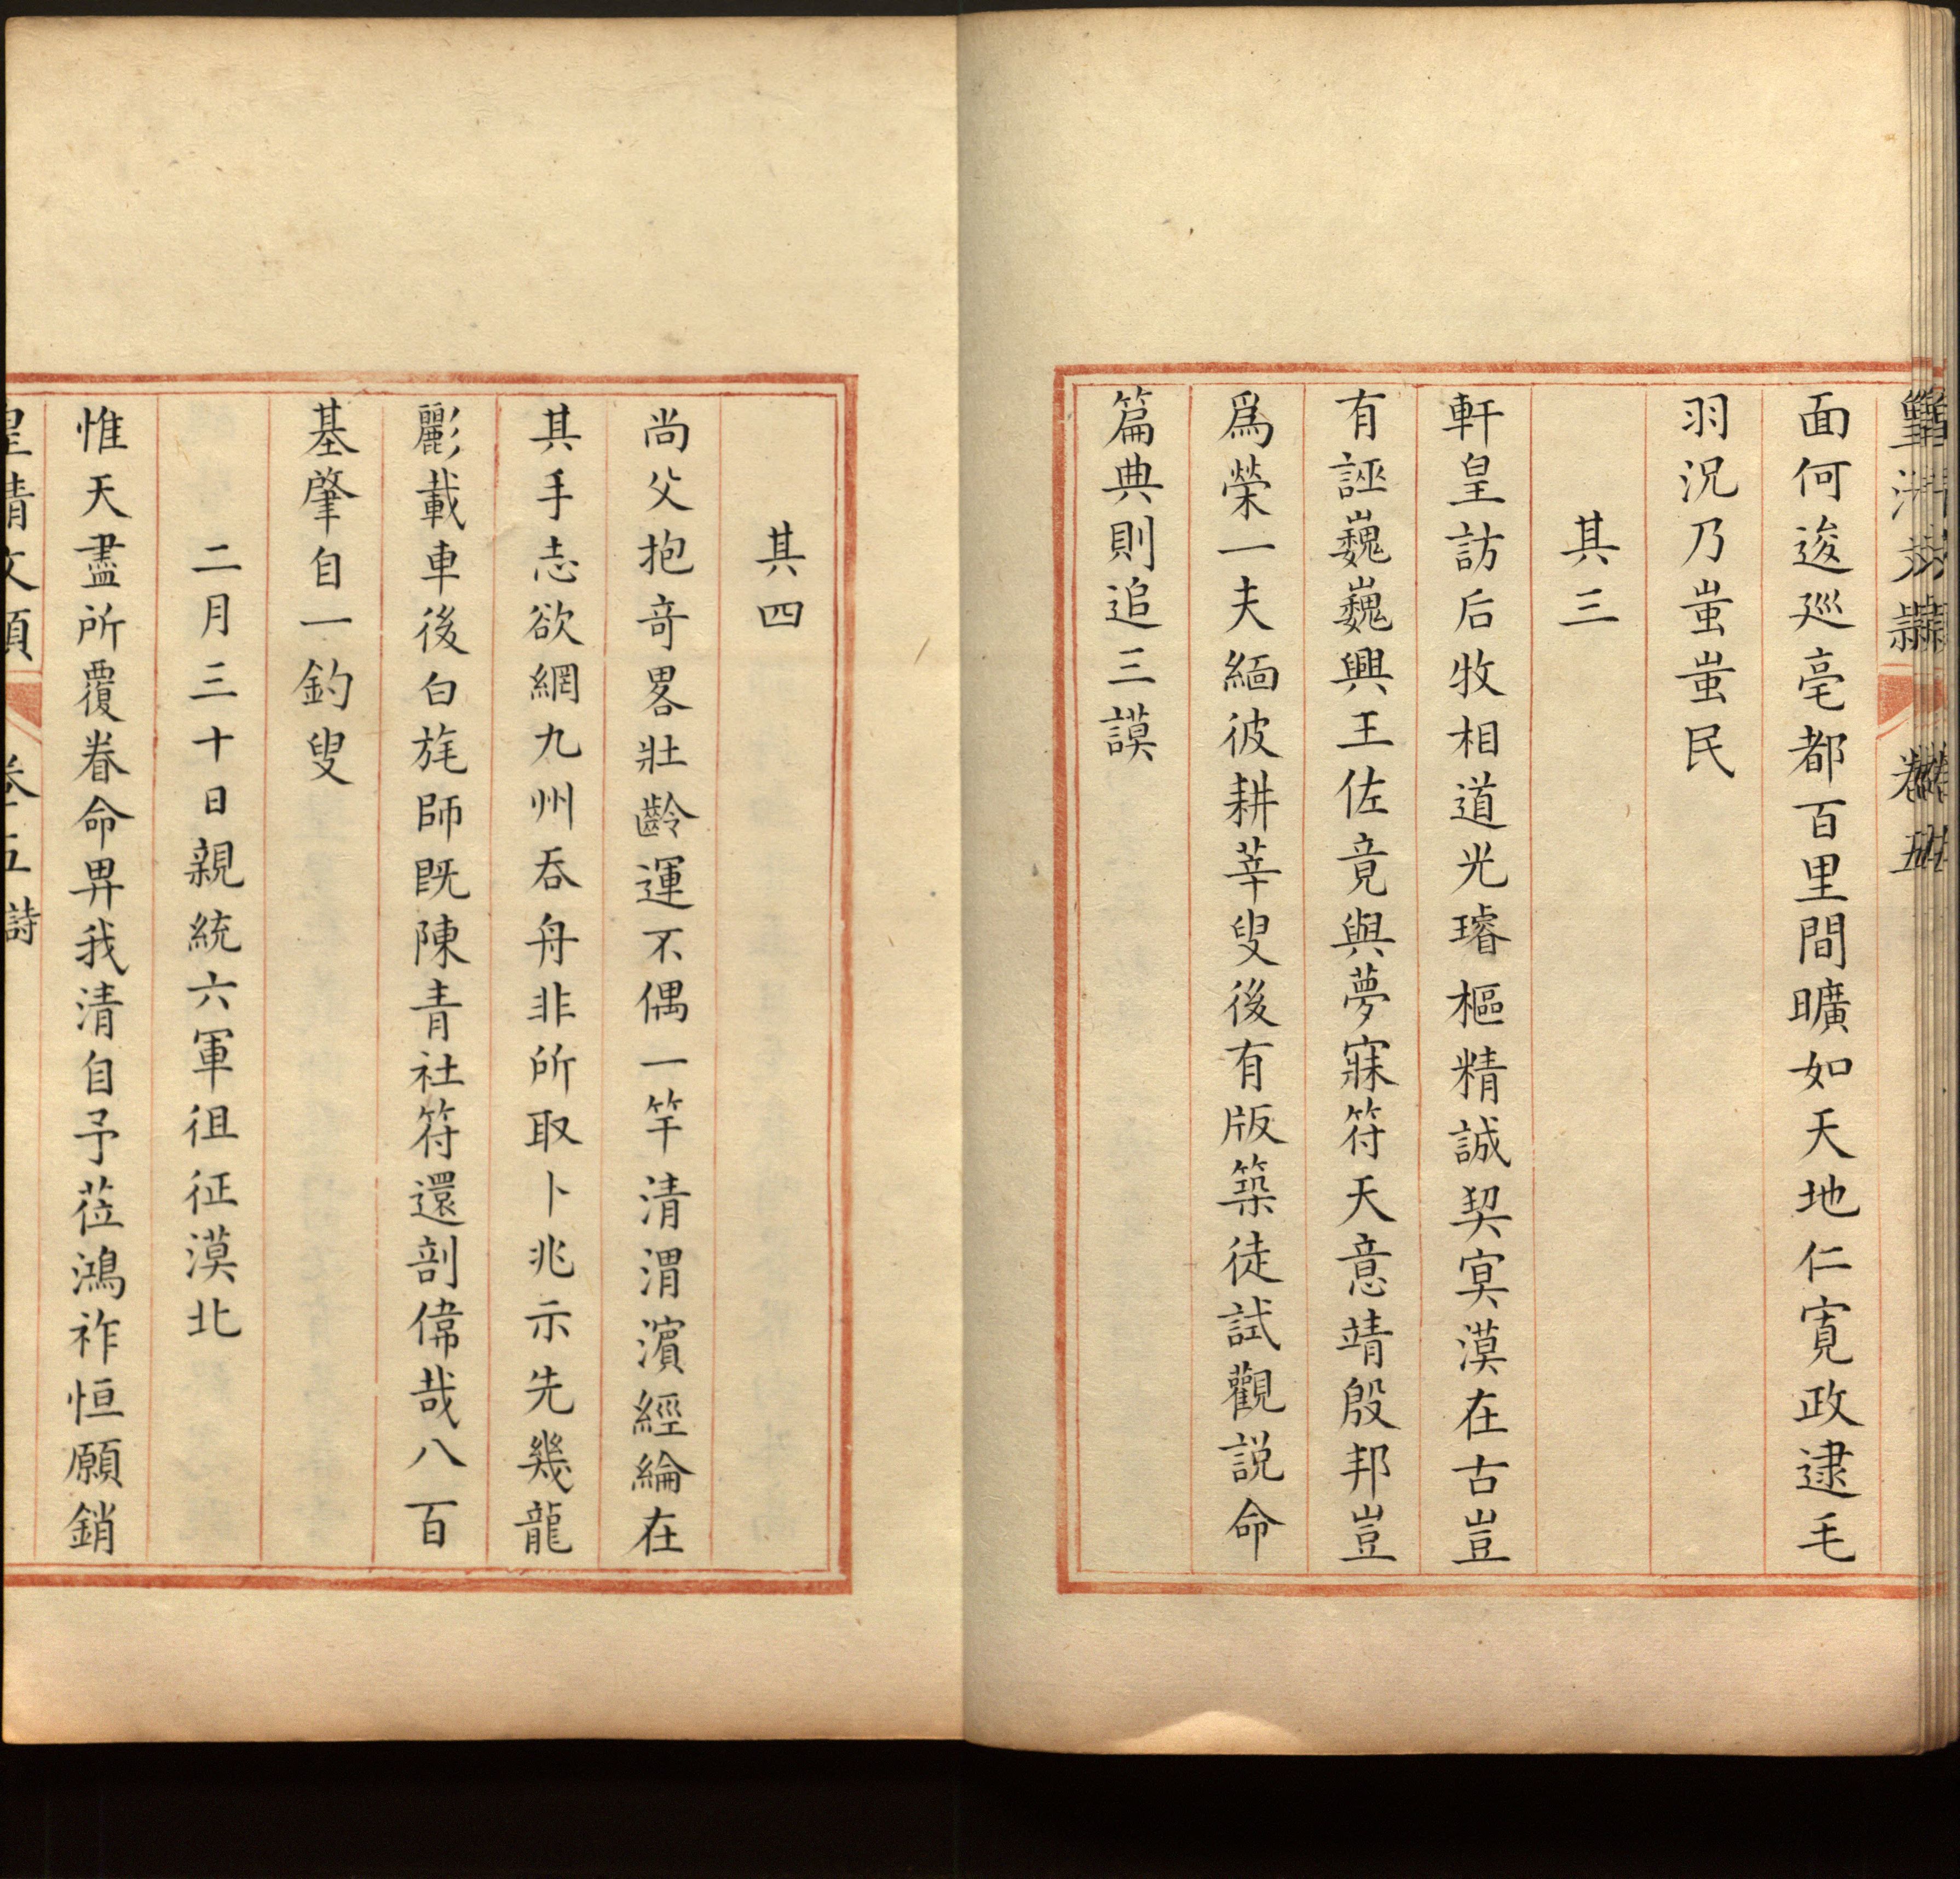 面何逡巡亳都百里間曠如天地仁寬政逮毛
羽況乃蚩蚩民
其三
軒皇訪后牧相道光璿樞精誠契寞漠在古豈
有誣巍巍興王佐竟與夢寐符天意靖殷邦豈
爲榮一夫緬彼耕莘叟後有版築徒試觀説命
篇典則追三謨
其四
尚父抱奇畧壯齡運不偶一竿清渭濱經綸在
其手志欲網九州吞舟非所取卜兆示先幾龍
彲載車後白旄師既陳青社符還剖偉哉八百
基肇自一釣叟
二月三十日親統六軍徂征漠北
惟天盡所覆眷命畀我清自予莅鴻祚恒願銷
皇清文頴 卷五 詩